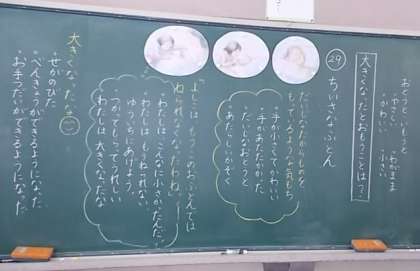 ㉙ ちいさなふとん
おとうと・いもうと
・やさしい ・わがまま
・かわいい ・小さい
大きくなったとおもうことは?
だいじなたからものを
もっているような気もち
・手が小さくてかわいい
・手があたたかかった
・だいじなおとうと
・あたらしいかぞく
「よし子は、もうこのおふとんでは
ねられなくなったわね。」
・わたしはこんなに小さかったんだ。
・わたしはもうねれない。
・ゆういちにあげよう。
・つかってもらってうれしい
・わたしは大きくなったな
大きくなったな
・せがのびた
・べんきょうができるようになった
・お手つだいができるようになった